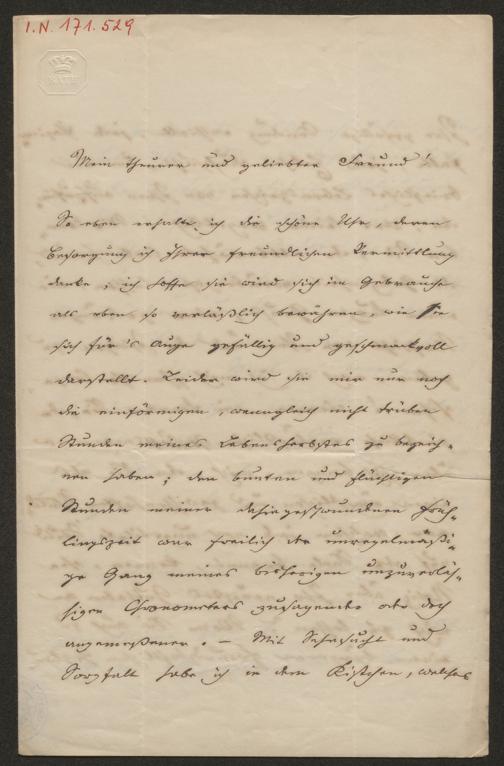 I.N. 171.529
BATH
Mein theurer und geliebter Freund!
So eben erhalte ich die schöne Uhr, deren
Besorgung ich Ihrer freundlichen Vermittlung
danke; ich hoffe sie wird sich im Gebrauche
als eben so verläßlich bewähren, wie sie
sich für's Auge gefällig und geschmackvoll
darstellt. Leider wird sie mir nur noch
die einförmigen, wenngleich nicht trüben
Stunden meines Lebensherbstes zu bezeich-
nen haben; den bunten und flüchtigen
Stunden meiner dahingeschwundenen Früh-
lingszeit war freilich der unregelmäßi-
ge Gang meines bisherigen unzuverläs-
sigen Chronometers zusagender oder doch
angemeßener. – Mit Sehnsucht und
Sorgfalt habe ich in dem Kistchen, welches